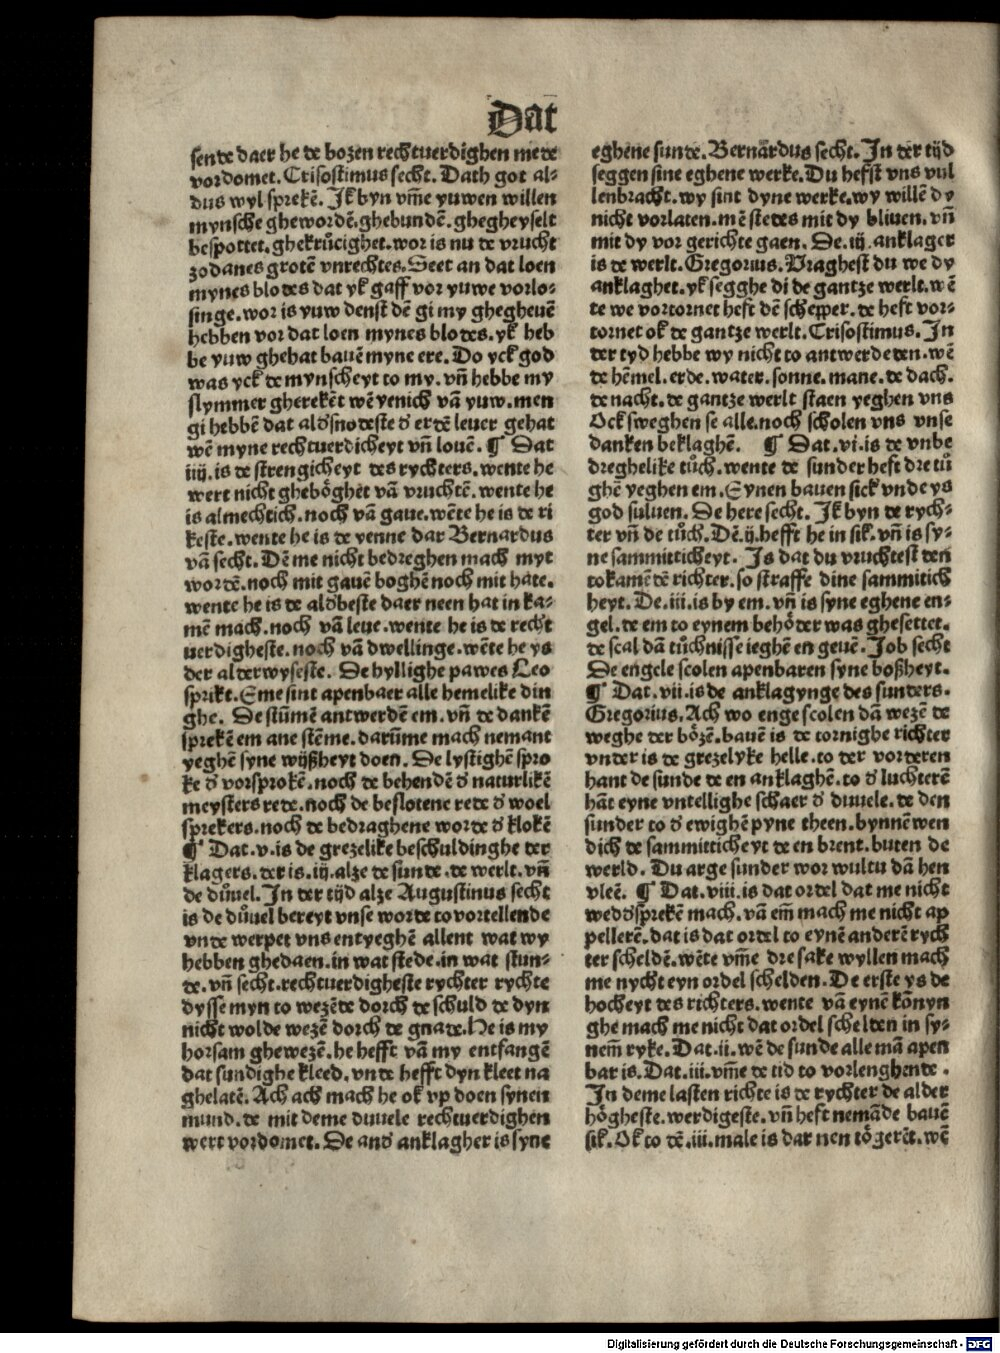 Dat
sende daer he de bozen rechtuerdighen mede
vordomet. Crisostimus secht. Dath got al-
dus wyl sprekē. Jk byn vm̄e yuwen willen
mynsche ghewordē. ghebundē. ghegheyselt
bespottet. ghekrůcighet. wor is nu de vrucht
zodanes grotē vnrechtes. Seet an dat loen
mynes blodes dat yk gaff vor yuwe vorlo-
singe. wor is yuw denst dē gi my ghegheuē
hebben vor dat loen mynes blodes. yk heb
be yuw ghehat bauē myne ere. Do yck god
was yck de mynscheyt to my. vn̄ hebbe my
slymmer gherekēt wē yenich vā yuw. men
gi hebbē dat aldsnodeste d erdē leuer gehat
wē myne rechtuerdicheyt vn̄ louē. ¶ Dat
iiij. is de strengicheyt des rychters. wente he
wert nicht gheböghēt vā vruchtē. wente he
is almechtich. noch vā gaue. wēte he is de ri
keste. wente he is de yenne dar Bernardus
vā secht. Dē me nicht bedreghen mach myt
wordē. noch mit gauē boghē noch mit hate.
wente he is de aldbeste daer neen hat in ka-
mē mach. noch vā leue. wente he is de recht
uerdigheste. noch vā dwellinge. wēte he ys
der alderwyseste. De hyllighe pawes Leo
sprikt. Eme sint apenbaer alle hemelike din
ghe. De stūmē antwerdē em. vn̄ de dankē
sprekē em ane stēme. darūme mach nemant
yeghē syne wyßheyt doen. De lystighē spro
ke d vorsprokē. noch de behendē d naturlikē
meysters rede. noch de beslotene rede d woel
sprekers. noch de bedraghene worde d klokē
¶ Dat. v. is de grezelike beschuldinghe der
klagers. der is. iij. alze de sunde. de werlt. vn̄
de důuel. Jn der tijd alze Augustinus secht
is de důuel bereyt vnse worde to vortellende
vnde werpet vns entyeghē allent wat wy
hebben ghedaen. in wat stede. in wat stun-
de. vn̄ secht. rechtuerdigheste rychter rychte
dysse myn to wezēde dorch de schuld de dyn
nicht wolde wezē dorch de gnade. He is my
horsam ghewezē. he hefft vā my entfangē
dat sundighe kleed. vnde hefft dyn kleet na
ghelatē. Ach ach mach he ok vp doen synen
mund. de mit deme duuele rechtuerdighen
wert vordomet. De and anklagher is syne
eghene sunde. Bernārdus secht. Jn der tijd
seggen sine eghene werke. Du hefst vns vul
lenbracht. wy sint dyne werke. wy willē dy
nicht vorlaten. mē stedes mit dy bliuen. vn̄
mit dy vor gerichte gaen. De. iij. anklager
is de werlt. Gregorius. Vraghest du we dy
anklaghet. yk segghe di de gantze werlt. wē
te we vortornet heft dē schepper. de heft vor-
tornet ok de gantze werlt. Crisostimus. Jn
der tyd hebbe wy nicht to antwerdeden. wē
de hēmel. erde. water. sonne. mane. de dach.
de nacht. de gantze werlt staen yeghen vns
Ock sweghen se alle. noch scholen vns vnse
danken beklaghē. ¶ Dat. vi. is de vnbe
dreghelike tůch. wente de sunder heft dre tů
ghē yeghen em. Eynen bauen sick vnde ys
god suluen. De here secht. Jk byn de rych-
ter vn̄ de tůch. Dē. ij. hefft he in sik. vn̄ is sy-
ne sammitticheyt. Js dat du vruchtest den
tokamēdē richter. so straffe dine sammitich
heyt. De. iii. is by em. vn̄ is syne eghene en-
gel. de em to eynem behöder was ghesettet.
de scal dā tůchnisse ieghē en geuē. Job secht
De engele scolen apenbaren syne boßheyt.
¶ Dat. vii. is de anklagynge des sunders.
Gregorius. Ach wo enge scolen dā wezē de
weghe der bözē. bauē is de tornighe richter
vnder is de grezelyke helle. to der vorderen
hant de sunde de en anklaghē. to d luchterē
hāt eyne vntellighe schaer d duuele. de den
sunder to d ewighē pyne theen. bynnē wen
dich de sammitticheyt de en brent. buten de
werld. Du arge sunder wor wultu dā hen
vleē. ¶ Dat. viii. is dat ordel dat me nicht
weddsprekē mach. vā em̄ mach me nicht ap
pellerē. dat is dat ordel to eynē anderē rych
ter scheldē. wēte vm̄e dre sake wyllen mach
me nycht eyn ordel schelden. De erste ys de
hocheyt des richters. wente vā eynē kōnyn
ghe mach me nicht dat ordel schelden in sy-
nem̄ ryke. Dat. ii. wē de sunde alle mā apen
bar is. Dat. iii. vm̄e de tid to vorlenghende.
Jn deme lasten richte is de rychter de alder
högheste. werdigeste. vn̄ heft nemāde bauē
sik. Ok to dē. iii. male is dar nen tögerēt. wē
Digitalisierung gefördert durch die Deutsche Forschungsgemeinschaft - DFG